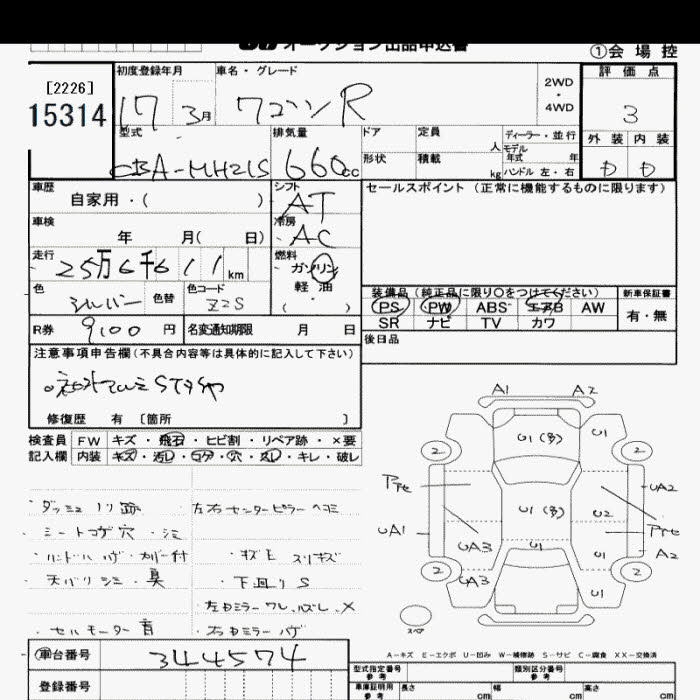 オークション出品申込書
①会場控
[2226]
15314
初度登録年月
17
3月
車名・グレード
ワゴンR
2WD
・
4WD
評価点
3
外装 内装
D D
型式
CBA-MH21S
排気量
660cc
ドア
形状
定員
人
積載
kg
ディーラー・並行
モデル年式 年
ハンドル 左・右
車歴
自家用・( )
シフト
AT
セールスポイント (正常に機能するものに限ります)
車検
年 月( 日)
冷房
AC
走行
25万6千611km
燃料
ガソリン
軽油
( ・ )
色
シルバー
色替
色コード
Z2S
装備品 (純正品に限り〇をつけてください)
PS PW ABS エアB AW
SR ナビ TV カワ
新車保証書
有・無
R券
9100円
名変通知期限 月 日
後日品
注意事項申告欄(不具合内容等は具体的に記入して下さい)
修復歴 有 〔箇所 〕
検査員記入欄
FW キズ・飛石・ヒビ割・リペア跡・×要
内装 キズ・汚レ・コゲ・穴・スレ・キレ・破レ
・ダッシュ ノリ跡
・左右センターピラー ヘコミ
・シートコゲ穴・シミ
・天バリ シミ・臭
・下回リ S
・セルモーター 音
A1 A2
U1 (多)
U1
2 2
Pte
U1 (多)
U2
UA2
UA1
UA3
U1
U1
Pte
A2
2 2
UA3
U1
スペア
A-キズ E-エクボ U-凹み W-補修跡 S-サビ C-腐食 XX-交換済
車台番号
344574
登録番号
型式指定番号
参考
類別区分番号
参考
車庫証明用
参考
長さ cm
幅 cm
高さ cm